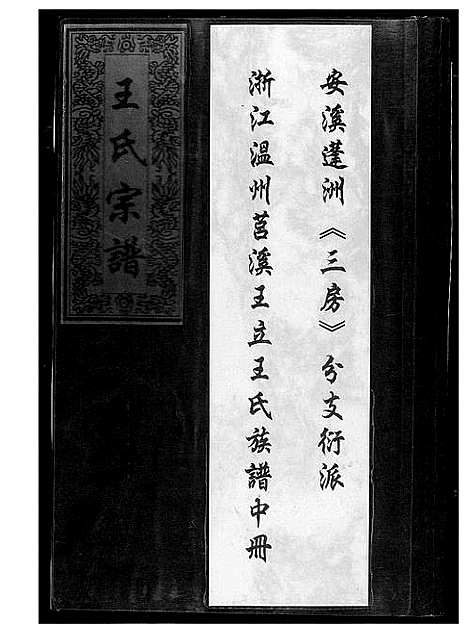 安溪蓬洲《三房》分支衍派
浙江温州莒溪王立王氏族譜中冊
王氏宗譜